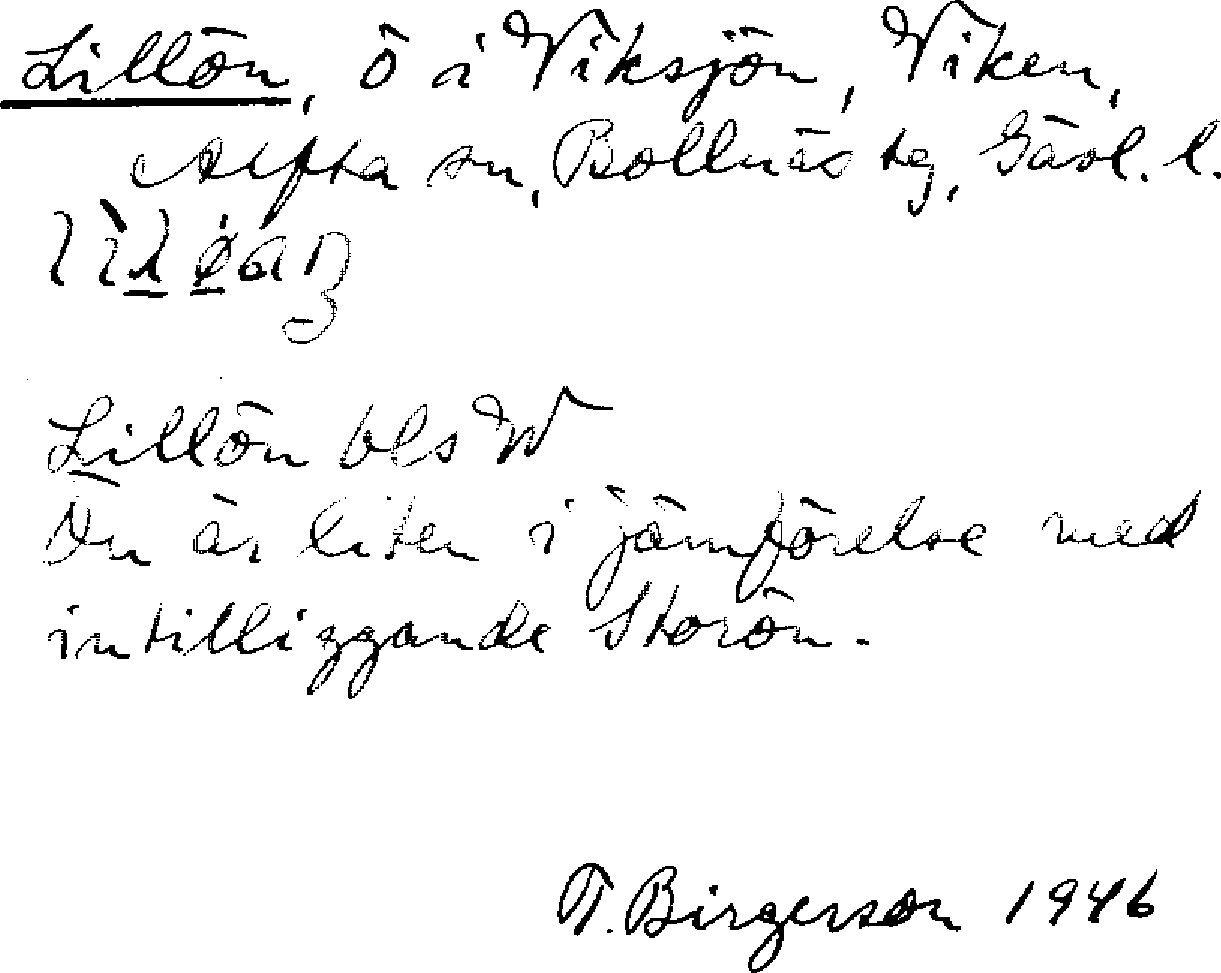 Lillön, ö i Viksjön, Viken,
Alfta sn, Bollnäs tg, Gävl. l.
Lillön bls W
Ön är liten i jämförelse med
intilliggande Storön.
T. Birgerson 1946